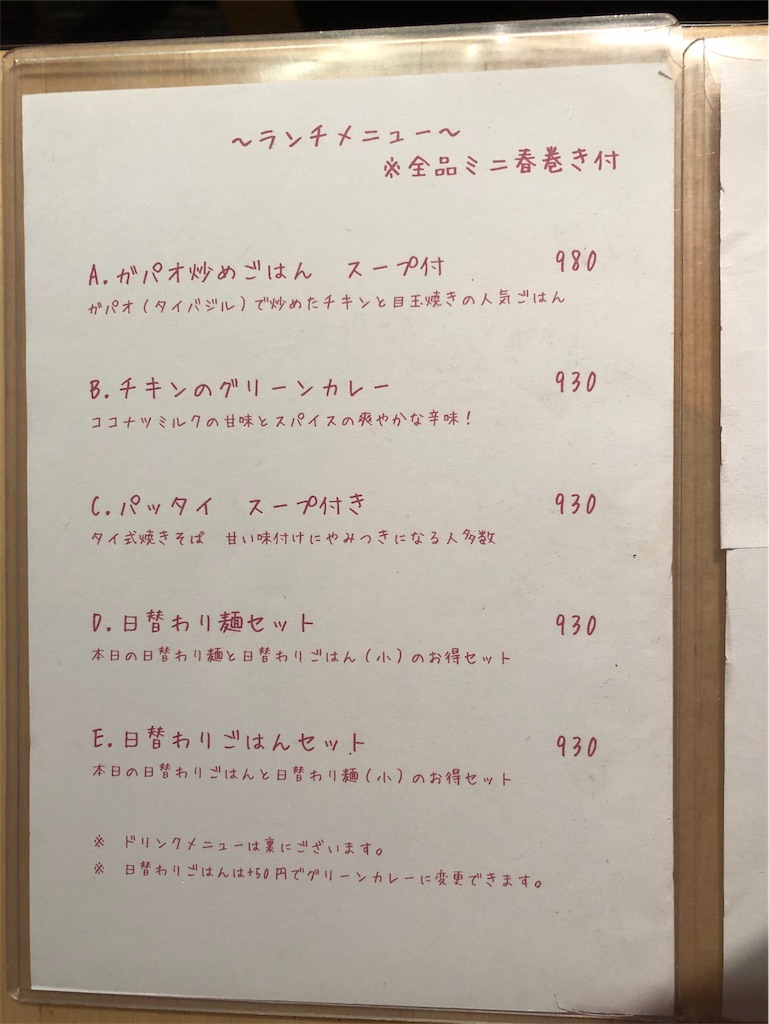 ～ランチメニュー～
※全品ミニ春巻き付
A.ガパオ炒めごはん　スープ付　980
ガパオ(タイバジル)で炒めたチキンと目玉焼きの人気ごはん
B.チキンのグリーンカレー　930
ココナツミルクの甘味とスパイスの爽やかな辛味!
C.パッタイ　スープ付き　930
タイ式焼きそば　甘い味付けにやみつきになる人多数
D.日替わり麺セット　930
本日の日替わり麺と日替わりごはん(小)のお得セット
E.日替わりごはんセット　930
本日の日替わりごはんと日替わり麺(小)のお得セット
※　ドリンクメニューは裏にございます。
※　日替わりごはんは+50円でグリーンカレーに変更できます。